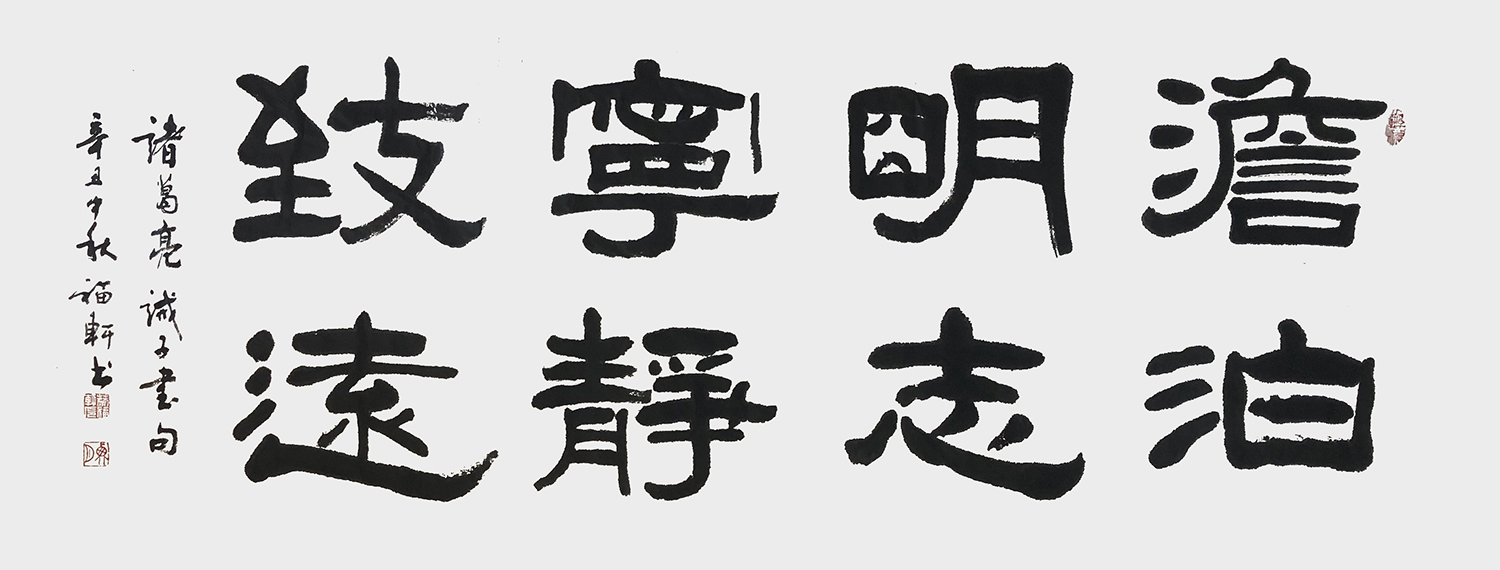 澹泊
明志
寧靜
致遠
諸葛亮誡子書句
辛丑中秋福軒书